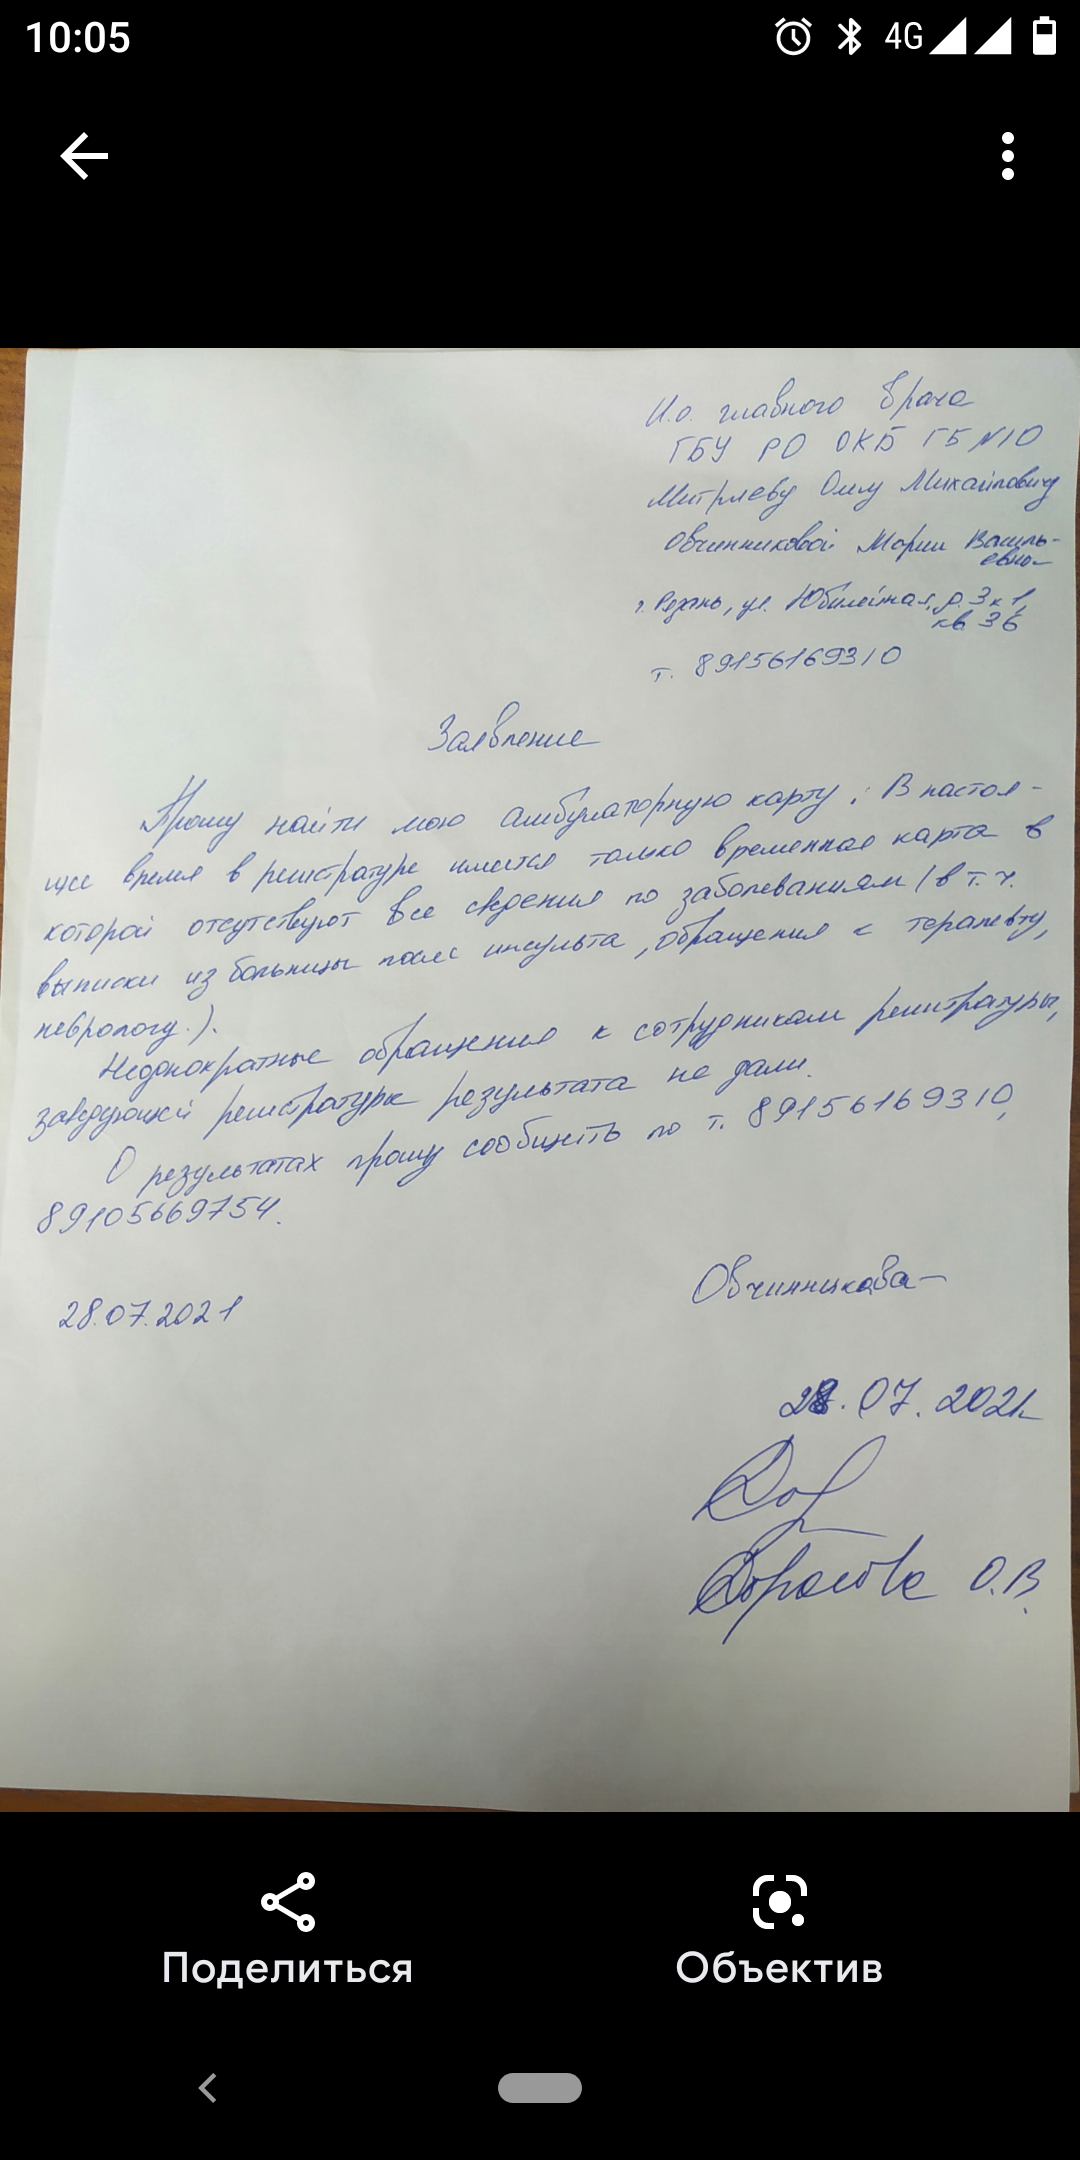 10:05
4G
И.о. главного врача
ГБУ РО ОКБ ГБ №10
Митряеву Олегу Михайловичу
Овчинниковой Марии Василь-
евны
г. Рязань, ул. Юбилейная, д. 3 к 1,
кв 36
т. 89156169310
Заявление
Прошу найти мою амбулаторную карту. В настоя-
щее время в регистратуре имеется только временная карта в
которой отсутствуют все сведения по заболеваниям (в т.ч.
выписки из больницы после инсульта, обращения к терапевту,
неврологу.).
Неоднократные обращения к сотрудникам регистратуры,
заведующей регистратуры результата не дали.
О результатах прошу сообщить по т. 89156169310,
89105669754.
Овчинникова
28.07.2021
28.07.2021
О.В.
Поделиться
Объектив